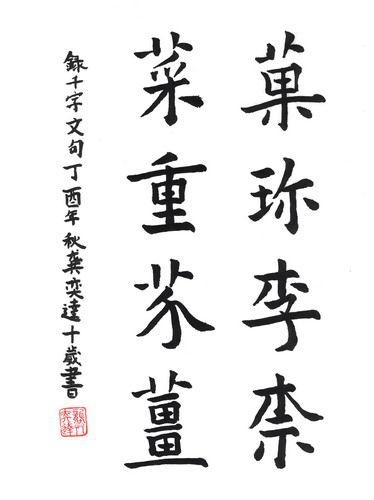 菓珍李柰
菜重芥薑
録千字文句丁酉年秋龔奕達十歲書